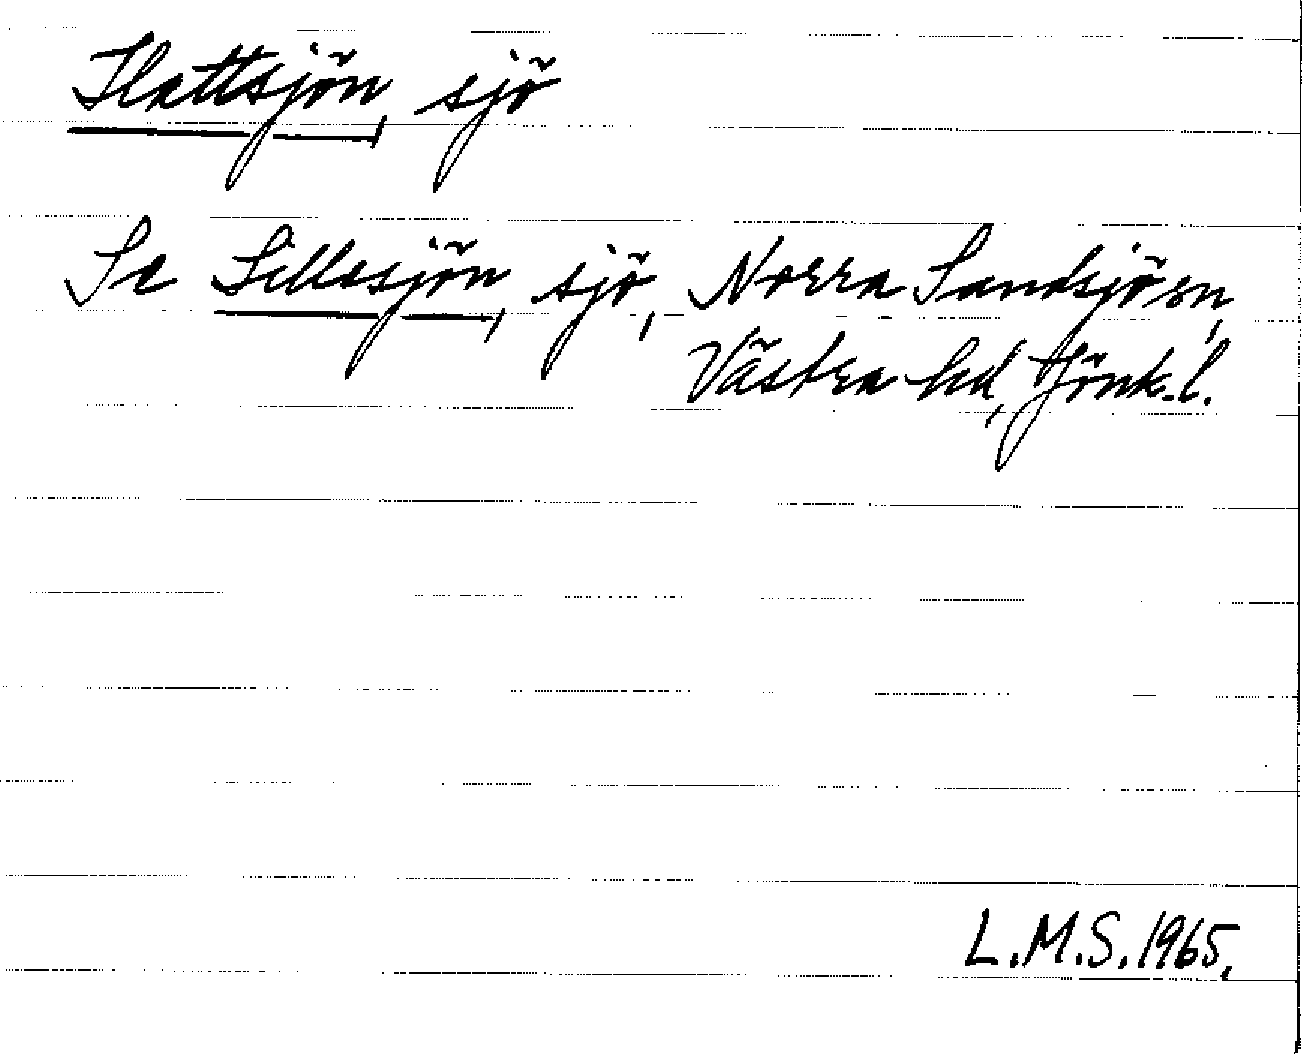 Hattsjön, sjö
Se Lillesjön, sjö, Norra Sandsjö sn,
Västra hd, Jönk. l.
L.M.S. 1965.